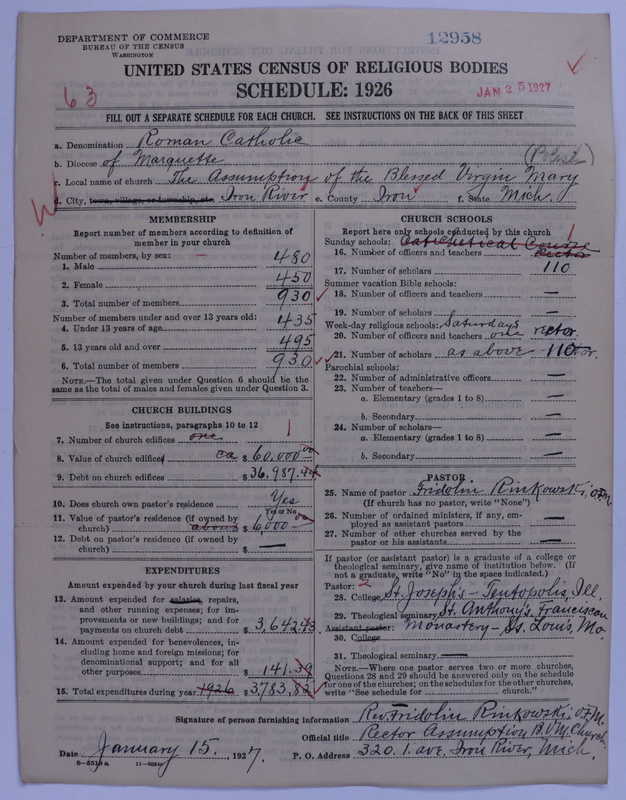 DEPARTMENT OF COMMERCE
BUREAU OF THE CENSUS
WASHINGTON
12958
UNITED STATES CENSUS OF RELIGIOUS BODIES
SCHEDULE: 1926
63
JAN 25 1927
FILL OUT A SEPARATE SCHEDULE FOR EACH CHURCH. SEE INSTRUCTIONS ON THE BACK OF THIS SHEET
a. Denomination Roman Catholic
b. Diocese of Marquette (Polish)
c. Local name of church The Assumption of the Blessed Virgin Mary
d. City, town, village, or township, etc. Iron River e. County Iron f. State Mich.
MEMBERSHIP
Report number of members according to definition of
member in your church
Number of members, by sex:
1. Male 480
2. Female 450
3. Total number of members 930
Number of members under and over 13 years old:
4. Under 13 years of age 435
5. 13 years old and over 495
6. Total number of members 930
NOTE.—The total given under Question 6 should be the
same as the total of males and females given under Question 3.
CHURCH BUILDINGS
See instructions, paragraphs 10 to 12
7. Number of church edifices one 1
8. Value of church edifices ca $ 60,000.00
9. Debt on church edifices $ 36,987.44
10. Does church own pastor's residence Yes
Yes or No
11. Value of pastor's residence (if owned by
church) about $ 6,000.00
12. Debt on pastor's residence (if owned by
church) $ —
EXPENDITURES
Amount expended by your church during last fiscal year
13. Amount expended for salaries, repairs,
and other running expenses; for im-
provements or new buildings; and for
payments on church debt $ 3,642.43
14. Amount expended for benevolences, in-
cluding home and foreign missions; for
denominational support; and for all
other purposes $ 141.39
15. Total expenditures during year 1926 $ 3783.82
CHURCH SCHOOLS
Report here only schools conducted by this church
Sunday schools: Catechetical Course
16. Number of officers and teachers Rector 1
17. Number of scholars 110
Summer vacation Bible schools:
18. Number of officers and teachers —
19. Number of scholars —
Week-day religious schools: Saturdays
20. Number of officers and teachers one rector.
21. Number of scholars as above 110
Parochial schools:
22. Number of administrative officers —
23. Number of teachers—
a. Elementary (grades 1 to 8) —
b. Secondary —
24. Number of scholars—
a. Elementary (grades 1 to 8) —
b. Secondary —
PASTOR
25. Name of pastor Fridolin Rinkowski, O.F.M.
(If church has no pastor, write "None")
26. Number of ordained ministers, if any, em-
ployed as assistant pastors —
27. Number of other churches served by the
pastor or his assistants —
If pastor (or assistant pastor) is a graduate of a college or
theological seminary, give name of institution below. (If
not a graduate, write "No" in the space indicated.)
Pastor: 2
28. College St. Joseph's – Teutopolis, Ill.
29. Theological seminary St. Anthony's Franciscan
Assistant pastor: Monastery – St. Louis, Mo.
30. College
31. Theological seminary —
NOTE.—Where one pastor serves two or more churches,
Questions 28 and 29 should be answered only on the schedule
for one of the churches; on the schedules for the other churches,
write "See schedule for church."
Signature of person furnishing information Rev. Fridolin Rinkowski, O.F.M.
Official title Rector Assumption B.V.M. Church
Date January 15, 1927. P. O. Address 320. 1. ave. Iron River, Mich.